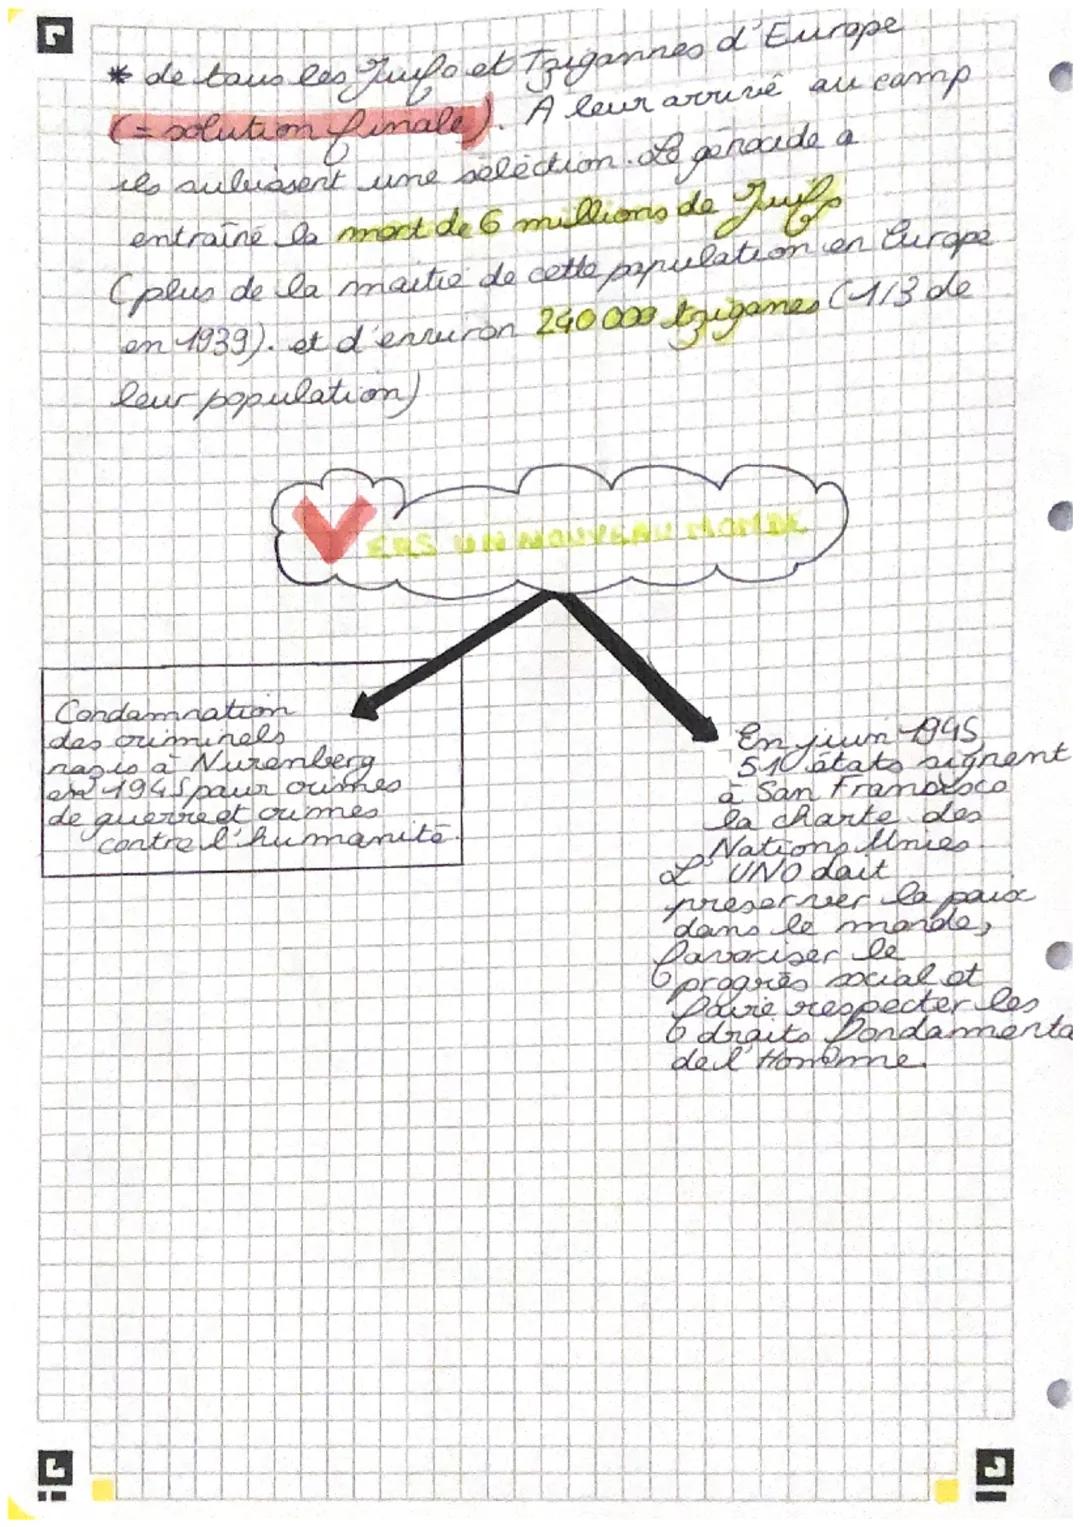 * de tous les Juifs et Tzigannes d'Europe
(= solution finale). A leur arrivé au camp
ils subissent une sélection. Le génocide a
entraîné la mort de 6 millions de Juifs
(plus de la moitié de cette population en Europe
en 1939). et d'environ 240 000 tziganes (1/3 de
leur population)
VERS UN NOUVEAU MONDE
Condamnation
des criminels
nazis à Nurenberg
en 1945 pour crimes
de guerre et crimes
contre l'humanité.
En juin 1945,
51 états signent
à San Francisco
la charte des
Nations Unies.
L'UNO doit
préserver la paix
dans le monde,
favoriser le
progrès social et
faire respecter les
droits fondamenta
de l'Homme.